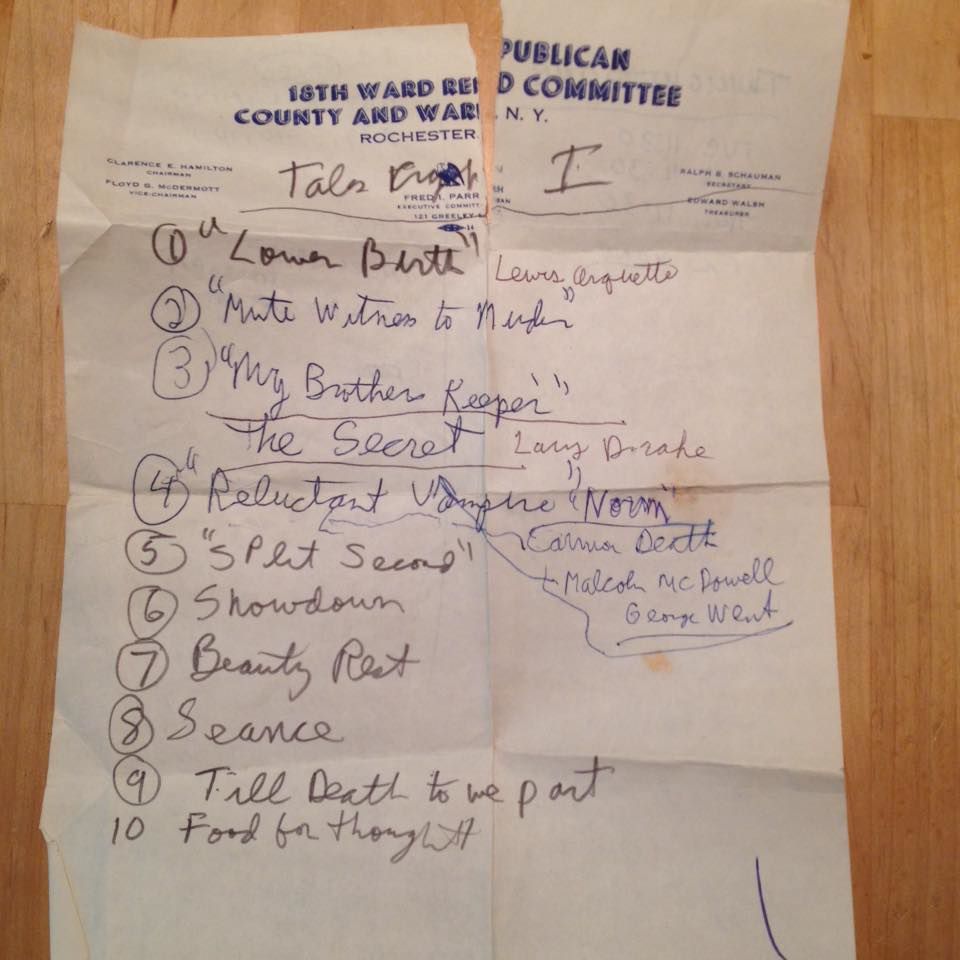 PUBLICAN
18TH WARD REP D COMMITTEE
COUNTY AND WAR . N. Y.
ROCHESTER
CLARENCE E. HAMILTON
CHAIRMAN
FLOYD G. McDERMOTT
VICE-CHAIRMAN
Tales Crypt I
FRED I. PARR
EXECUTIVE COMMITT
121 GREELEY
RALPH B. SCHAUMAN
SECRETARY
EDWARD WALSH
TREASURER
① "Lower Birth" Lewis Arquette
② "Mute Witness to Murder"
③ "My Brothers Keeper"
The Secret Larry Drake
④ "Reluctant Vampire" "Norm"
Death
Malcolm McDowell
George Went
⑤ "Split Second"
⑥ Showdown
⑦ Beauty Rest
⑧ Seance
⑨ Till Death to we part
10 Food for thought